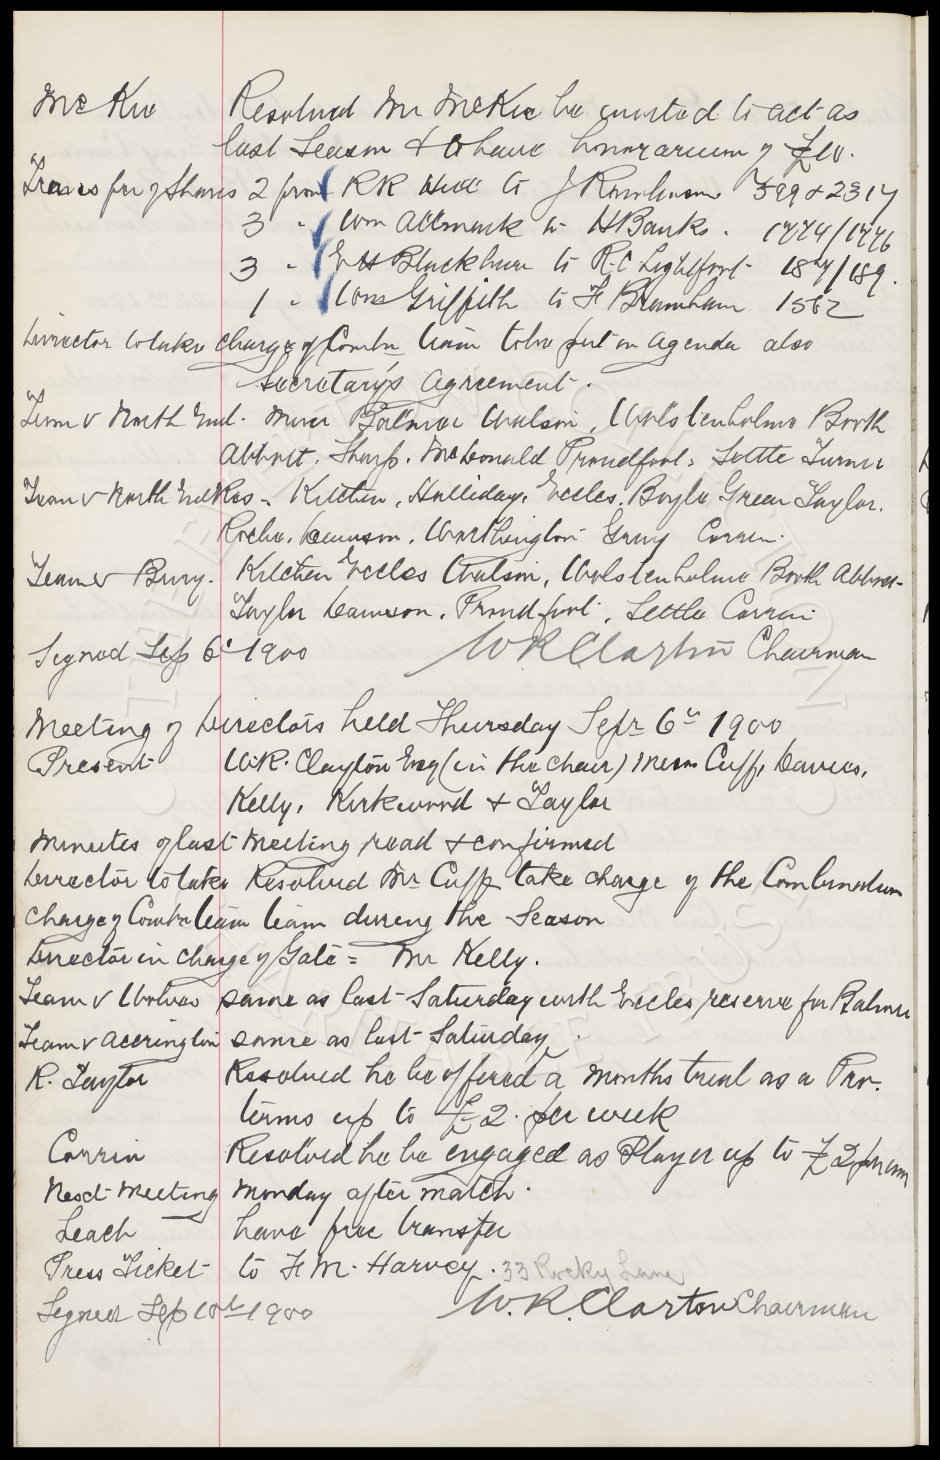 McKie Resolved Mr McKie be invited to act as
last Season & to have honorarium of £10.
Transfer of Shares 2 from R R Hill to J Rawlinson 599 & 2317
3 " Wm Allmark to H Banks. 1774/1776
3 " E H Blackburn to R. C Lightfoot 187/189.
1 " Wm Griffith to F Bramham 1562
Director to take charge of Combn team to be put on agenda also
Secretary's agreement.
Team v North End. Muir Balmer Watson, Wolstenholme Booth
Abbott. Sharp. McDonald Proudfoot. Settle Turner
Team v North End Res - Kitchen, Halliday, Eccles. Boyle Green Taylor.
Roche. Dawson. Worthington Gray Corrin.
Team v Bury. Kitchen Eccles Watson, Wolstenholme Booth Abbott
Taylor Dawson. Proudfoot. Settle Corrin
Signed Sep 6th 1900 W R Clayton Chairman
Meeting of Directors held Thursday Sepr 6th 1900
Present W.R. Clayton Esq (in the chair) Messrs Cuff, Davies,
Kelly, Kirkwood & Taylor
Minutes of last Meeting read & confirmed
Director to take Resolved Mr Cuff take charge of the Combination
charge of Combn team team during the Season
Director in charge of Gate = Mr Kelly.
Team v Wolves same as last Saturday with Eccles reserve for Balmer
Team v Accrington same as last Saturday.
R. Taylor Resolved he be offered a months trial as a Pro.
terms up to £2. per week
Corrin Resolved he be engaged as Player up to £2 per
Next Meeting Monday after match.
Leach have free transfer
Press Ticket to F. M. Harvey. 33 Rocky Lane
Signed Sep 10th 1900 W. R. Clayton Chairman